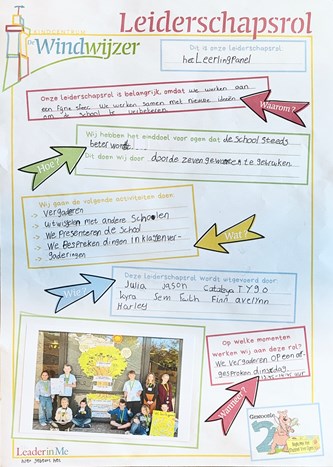 Leiderschapsrol
KINDCENTRUM
De Windwijzer
Dit is onze leiderschapsrol
het Leerlingpanel
Onze leiderschapsrol is belangrijk, omdat we werken aan
een fijne sfeer. We werken samen met nieuwe ideeën
om de school te verbeteren.
Waarom?
Wij hebben het einddoel voor ogen dat de School steeds
beter wordt.
Dit doen wij door door de zeven gewoonten te gebruiken
Hoe?
Wij gaan de volgende activiteiten doen
-> Vergaderen
-> Uitwisselen met andere Scholen
-> We Presenteren de School
-> We Bespreken dingen in klassenver-
gaderingen
Wat?
Deze leiderschapsrol wordt uitgevoerd door
Julia Jason Cataleya TYGO
Lyra Sem Fatih Finn avelynn
Harley
Wie?
Op welke momenten
werken wij aan deze rol?
We vergaderen op een af-
gesproken dinsdag
Wanneer?
Gewoonte
2
Leader in Me